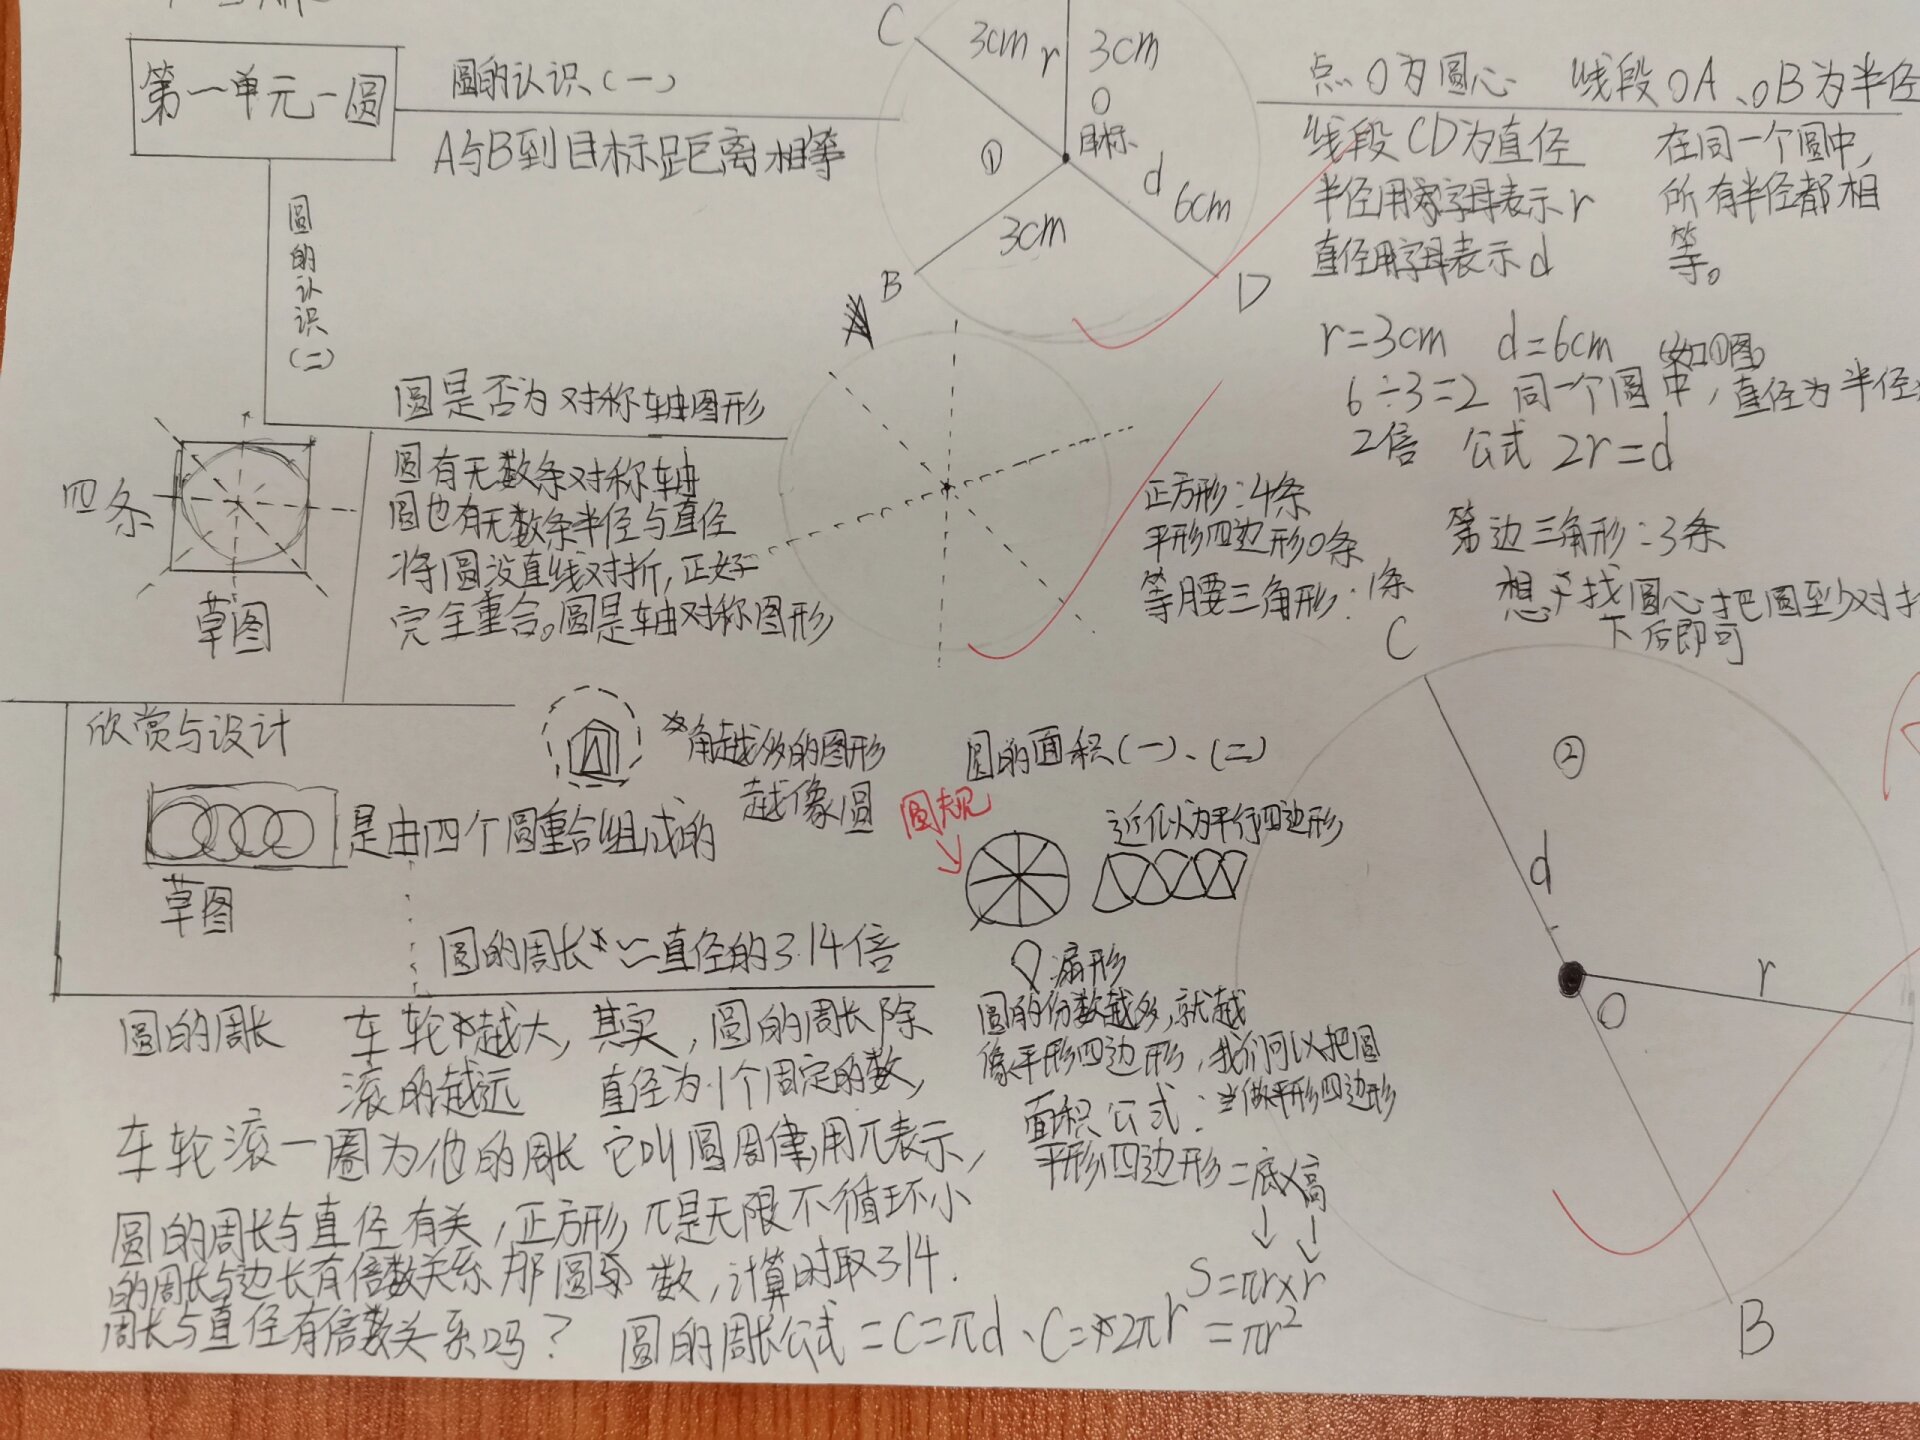 第一单元-圆
圆的认识(一)
A与B到目标距离相等
C
3cm r
3cm
O
目标
①
d
6cm
3cm
B
D
点O为圆心 线段OA、OB为半径
线段CD为直径
半径用字母表示r
直径用字母表示d
在同一个圆中,
所有半径都相
等。
r=3cm d=6cm (如①图)
6÷3=2 同一个圆中,直径为半径
2倍 公式 2r=d
圆的认识(二)
圆是否为对称轴图形
四条
草图
圆有无数条对称轴
圆也有无数条半径与直径
将圆没直线对折,正好
完全重合。圆是轴对称图形
正方形:4条
平形四边形0条
等腰三角形:1条
等边三角形:3条
想要找圆心把圆至少对折
下后即可
欣赏与设计
是由四个圆重合组成的
草图
角越多的图形
越像圆
圆的面积(一)、(二)
圆规
近似为平行四边形
扇形
圆的份数越多,就越
像平形四边形,我们可以把圆
当做平形四边形
面积公式:
平形四边形=底×高
S=πr×r
=πr²
圆的周长≈直径的3.14倍
圆的周长
车轮越大,
滚的越远
车轮滚一圈为他的周长
圆的周长与直径有关,正方形
的周长与边长有倍数关系那圆
周长与直径有倍数关系吗?
其实,圆的周长除
直径为1个固定的数,
它叫圆周律,用π表示,
π是无限不循环小
数,计算时取3.14.
圆的周长公式=C=πd、C=2πr
C
②
d
r
O
B